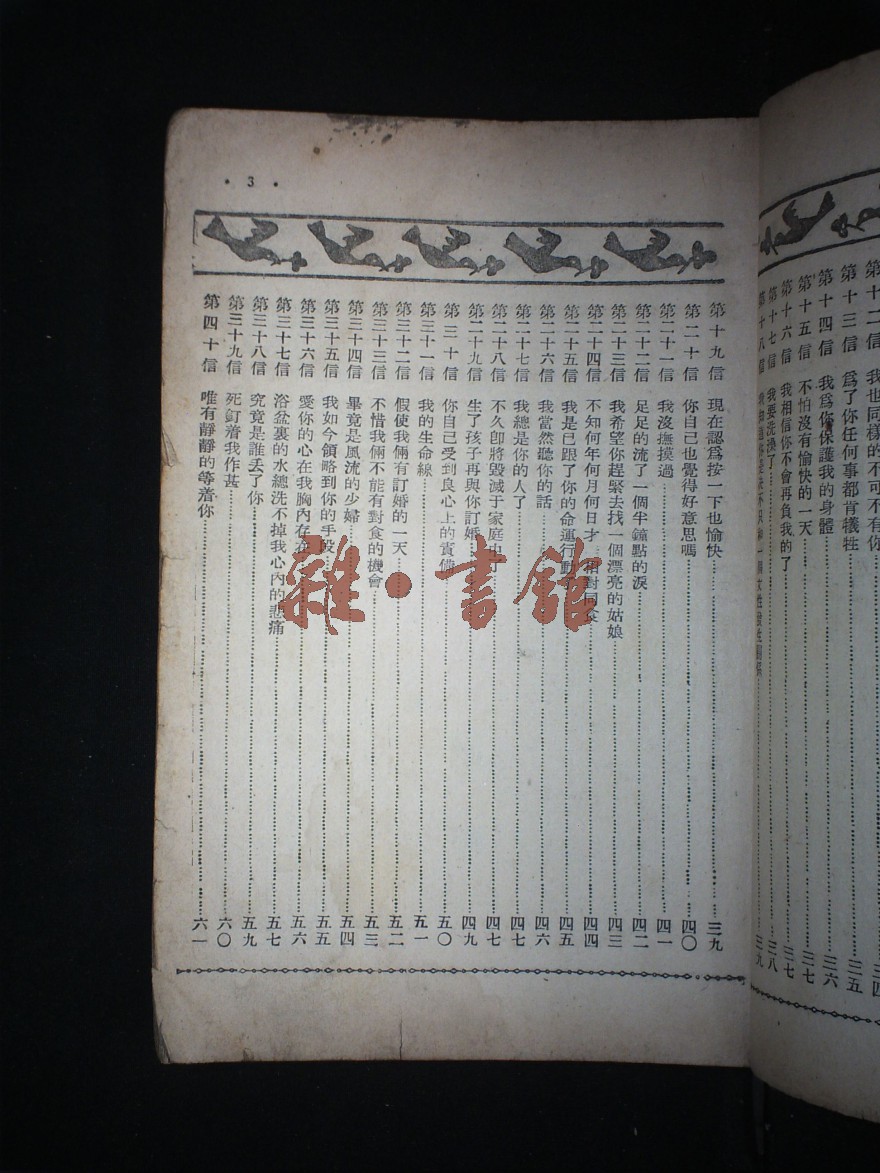 第十二信 我也同樣的不可不有你 三四
第十三信 爲了你任何事都肯犧牲 三五
第十四信 我爲你保護我的身體 三六
第十五信 不怕沒有愉快的一天 三七
第十六信 我相信你不會再負我的了 三七
第十七信 我要洗澡了 三八
第十八信 三九
• 3 •
第十九信 現在認爲按一下也愉快 三九
第二十信 你自己也覺得好意思嗎 四〇
第二十一信 我沒撫摸過 四一
第二十二信 足足的流了一個半鐘點的淚 四二
第二十三信 我希望你趕緊去找一個漂亮的姑娘 四三
第二十四信 不知何年何月何日才 相對同食 四四
第二十五信 我是已跟了你的命運行動了 四五
第二十六信 我當然聽你的話 四六
第二十七信 我總是你的人了 四七
第二十八信 不久卽將毀滅于家庭中 四七
第二十九信 生了孩子再與你訂婚 四九
第三十信 你自己受到良心上的責備 五〇
第三十一信 我的生命線 五一
第三十二信 假使我倆有訂婚的一天 五二
第三十三信 不惜我倆不能有對食的機會 五三
第三十四信 畢竟是風流的少婦 五四
第三十五信 我如今領略到你的手段 五五
第三十六信 愛你的心在我胸內存在 五六
第三十七信 浴盆裏的水總洗不掉我心內的悲痛 五七
第三十八信 究竟是誰丟了你 五九
第三十九信 死釘着我作甚 六〇
第四十信 唯有靜靜的等着你 六一
雜•書館